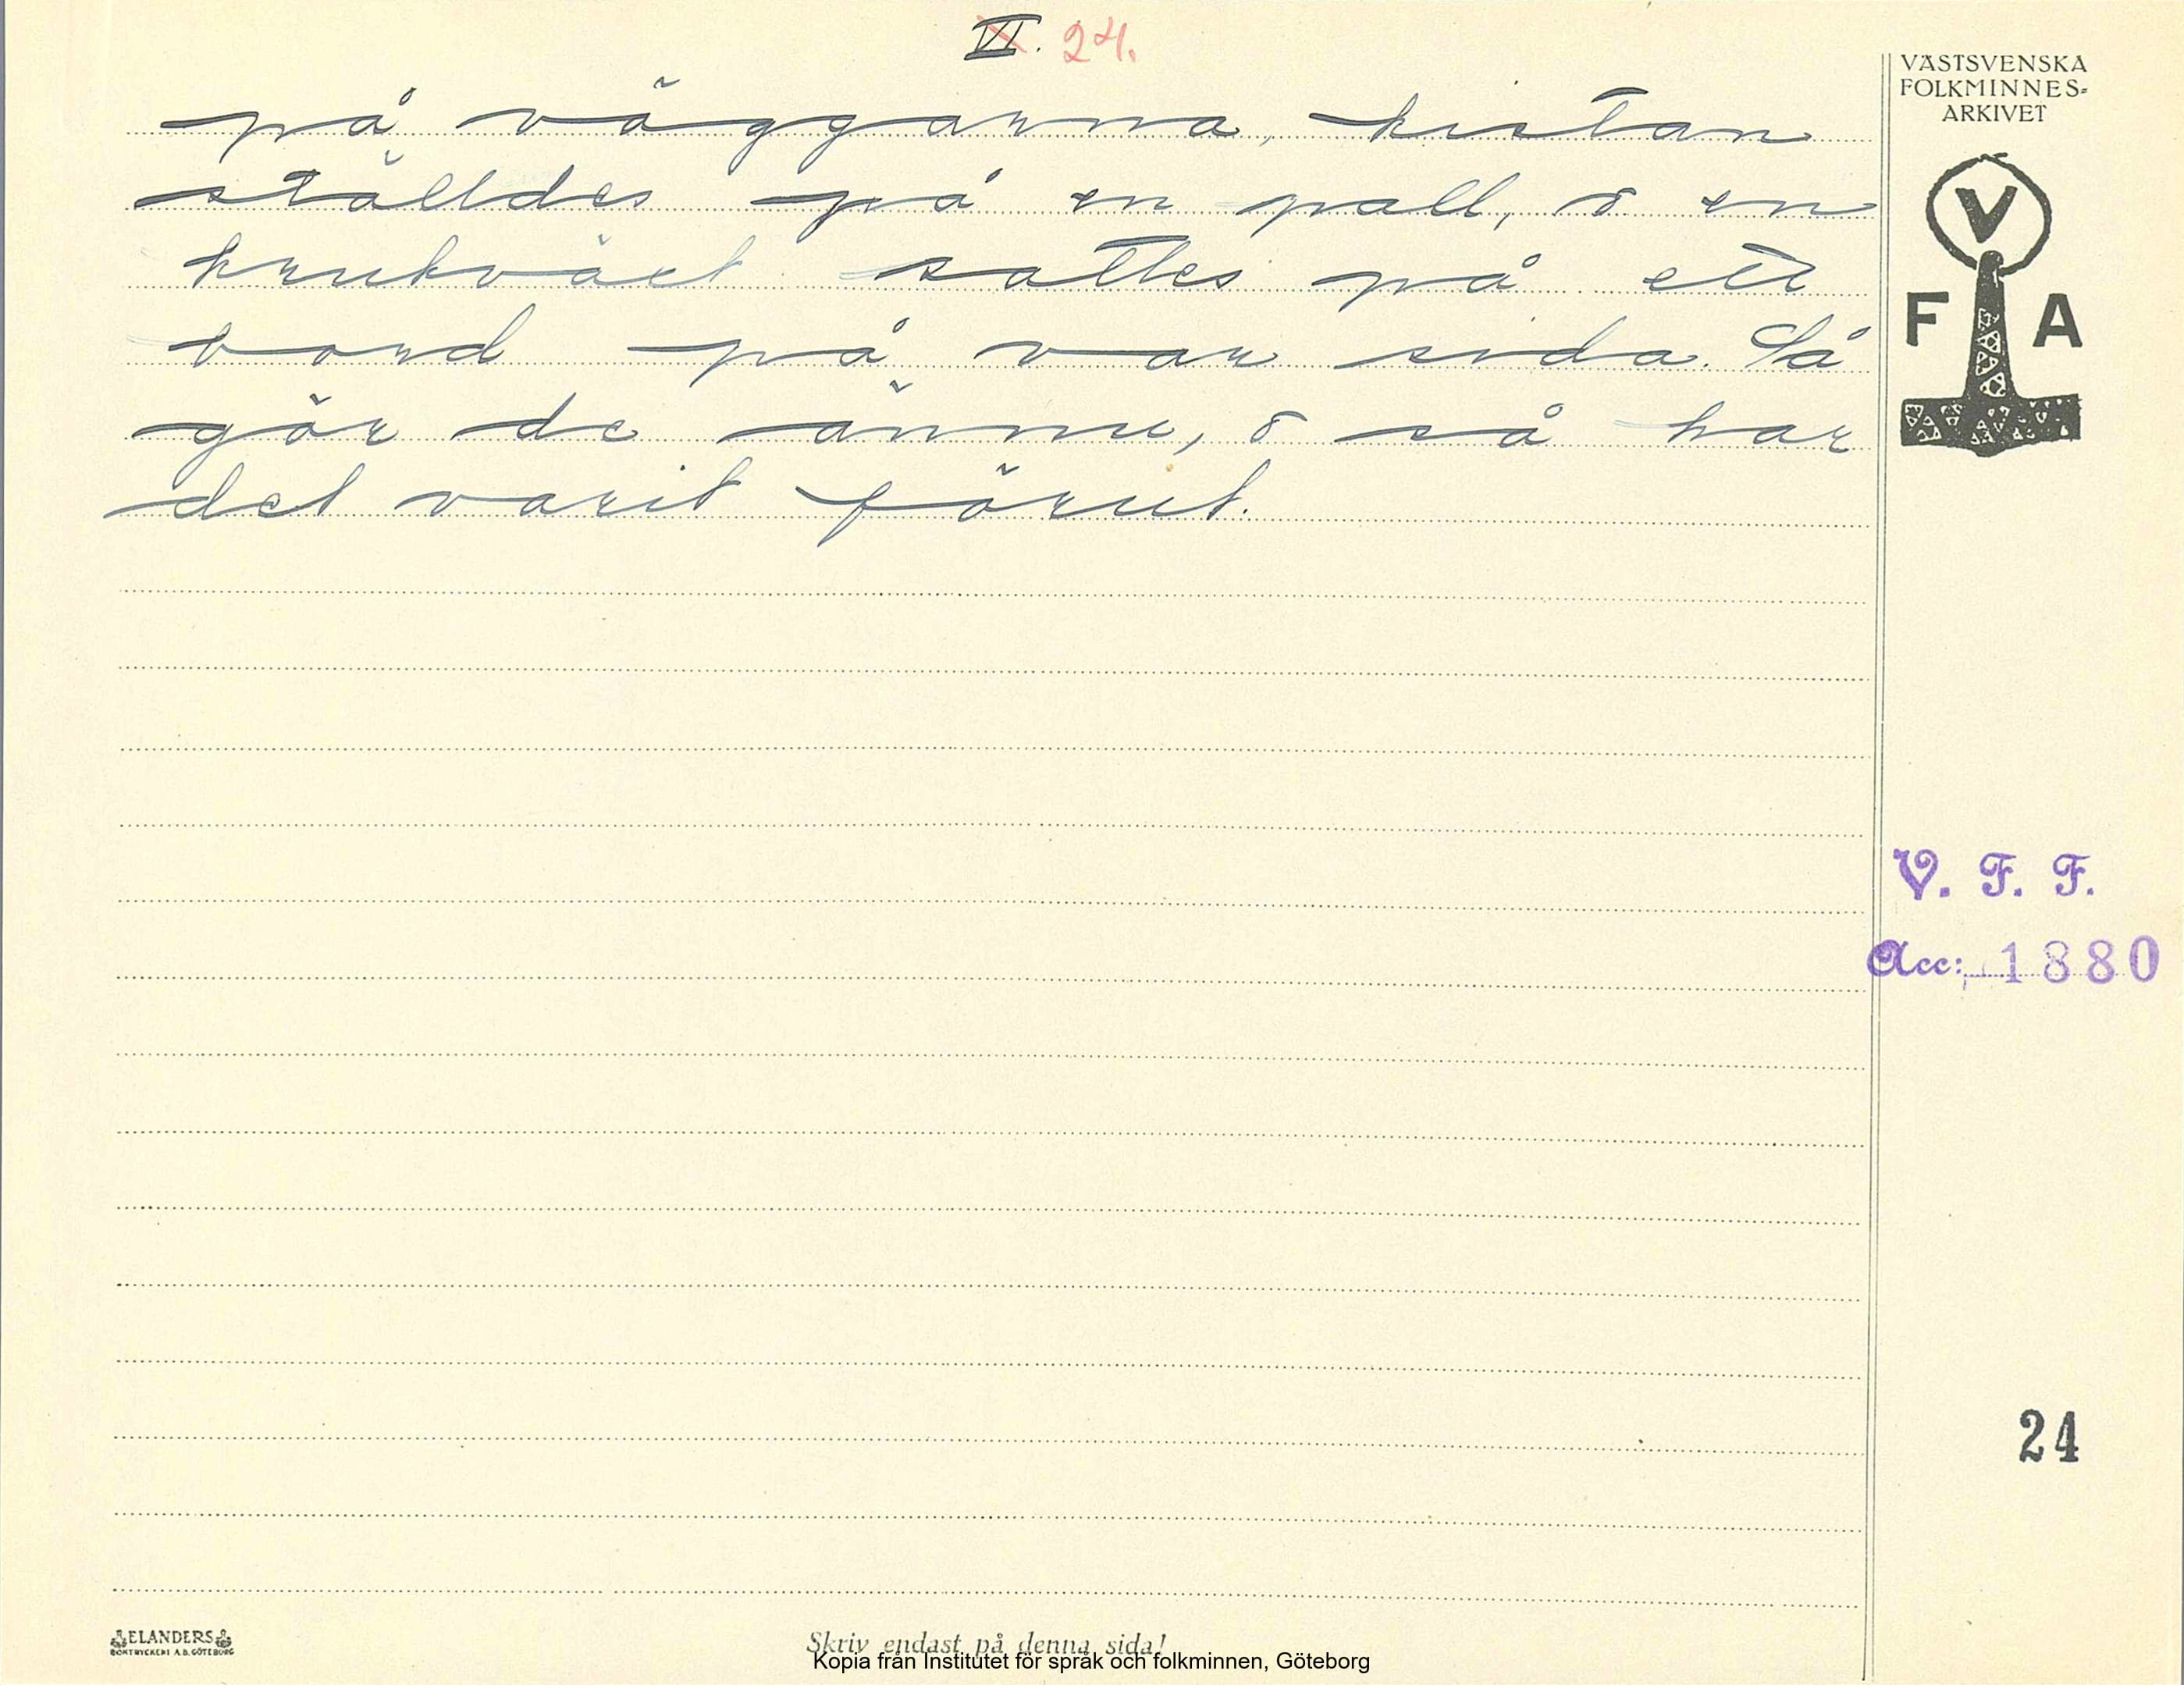 VI. 24.
på väggarna, kistan
ställdes på en pall, o en
krukväxt sattes på ett
bord på var sida. Så
gör de ännu, o så har
det varit förut.
VÄSTSVENSKA
FOLKMINNES-
ARKIVET
V
F A
V. F. F.
Acc: 1880
24
ELANDERS
BOKTRYCKERI A.B. GÖTEBORG
Skriv endast på denna sida!
Kopia från Institutet för språk och folkminnen, Göteborg